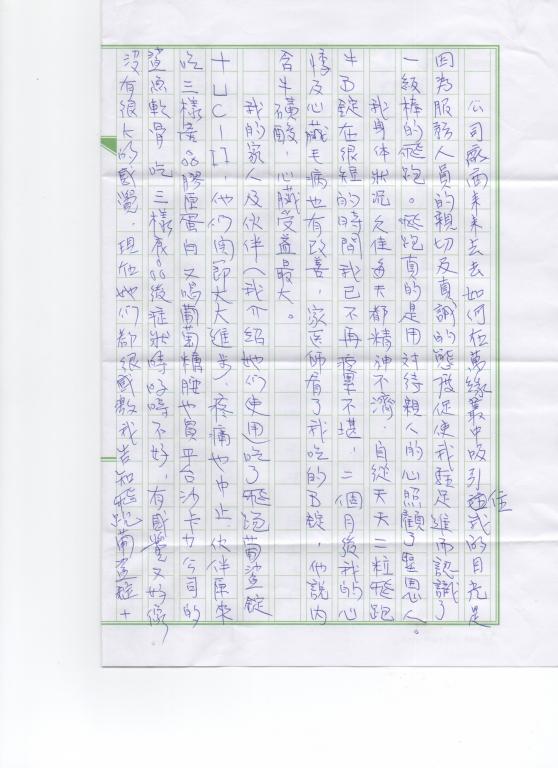 公司廠商來來去去如何在萬緣叢中吸引住我的目光是
因為服務人員的親切及真誠的態度促使我駐足進而認識了
一級棒的飛跑。飛跑真的是用對待親人的心照顧了咱恩人。
我身體狀況欠佳每天都精神不濟,自從天天二粒飛跑
牛B錠在很短的時間我已不再疲累不堪,二個月後我的心
悸及心臟毛病也有改善,家医師看了我吃的B錠,他說內
含牛磺酸,心臟受益最大。
我的家人及伙伴(我介紹她們使用)吃了飛跑葡鯊錠
+UCII,他們関節大大進步,疼痛也中止,伙伴原來
吃三樣產品膠原蛋白又喝葡萄糖胺也買平台沙卡力公司的
鯊魚軟骨吃三樣產品後症狀時好時不好,有感覺又好像
沒有很大的感覺,現在她們都很感激我告知飛跑葡鯊錠+